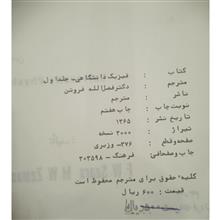 کتاب : فیزیک دانشگاهی - جلد اول
مترجم : دکتر فضل الله فروتن
ناشر : مترجم
نوبت چاپ : چاپ هفتم
تاریخ نشر : ۱۳۶۵
تیراژ : ۳۰۰۰ نسخه
صفحه و قطع : ۳۷۶ - وزیری
چاپ و صحافی : فرهنگ - ۳۰۳۵۹۸
کلیه حقوق برای مترجم محفوظ است
قیمت : ۶۰۰ ریال